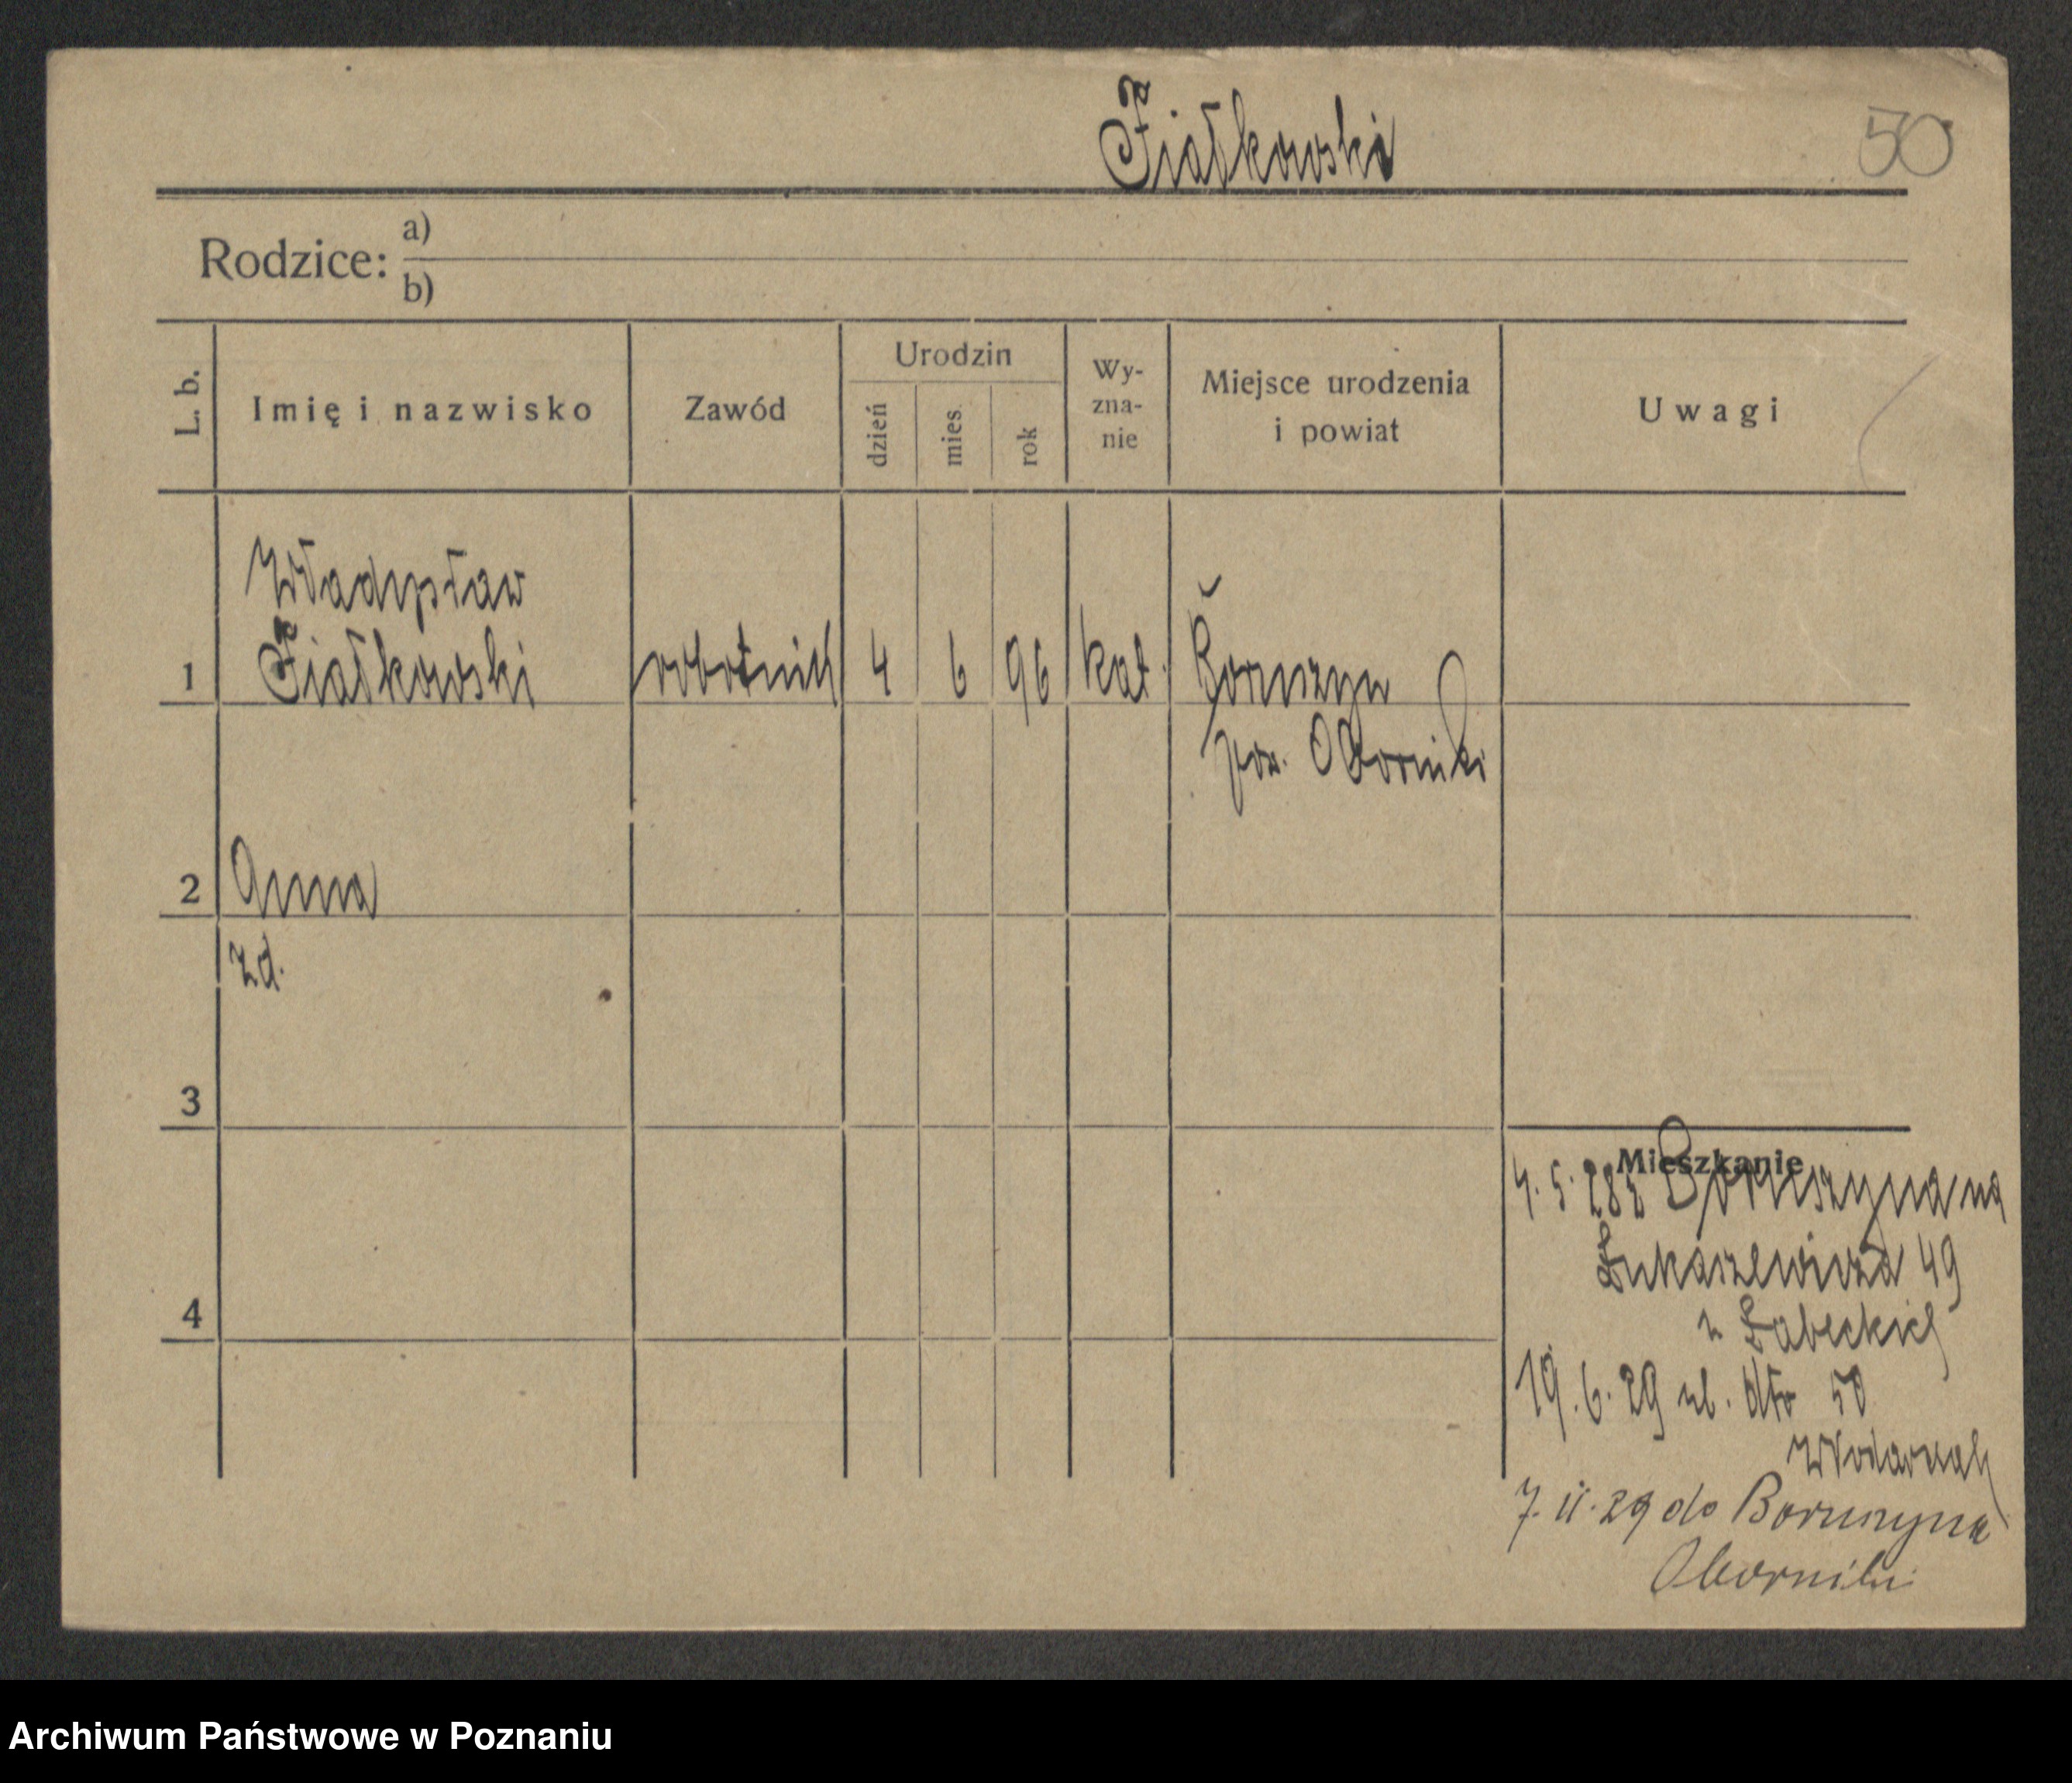 Fiałkowski
50
Rodzice:
a)
b)
L. b.
Imię i nazwisko
Zawód
Urodzin
dzień
mies.
rok
Wy-
zna-
nie
Miejsce urodzenia
i powiat
Uwagi
Władysław
1 Fiałkowski robotnik 4 6 96 kat. Boruszyn
pow. Oborniki
2 Anna
zd.
3
Mieszkanie
4. 5. 28 z Boruszyna na
Łukaszewicza 49
u Łabeckich
4
19. 6. 29 ul. dto 50
7. 11. 29 do Boruszyna
Oborniki
Archiwum Państwowe w Poznaniu